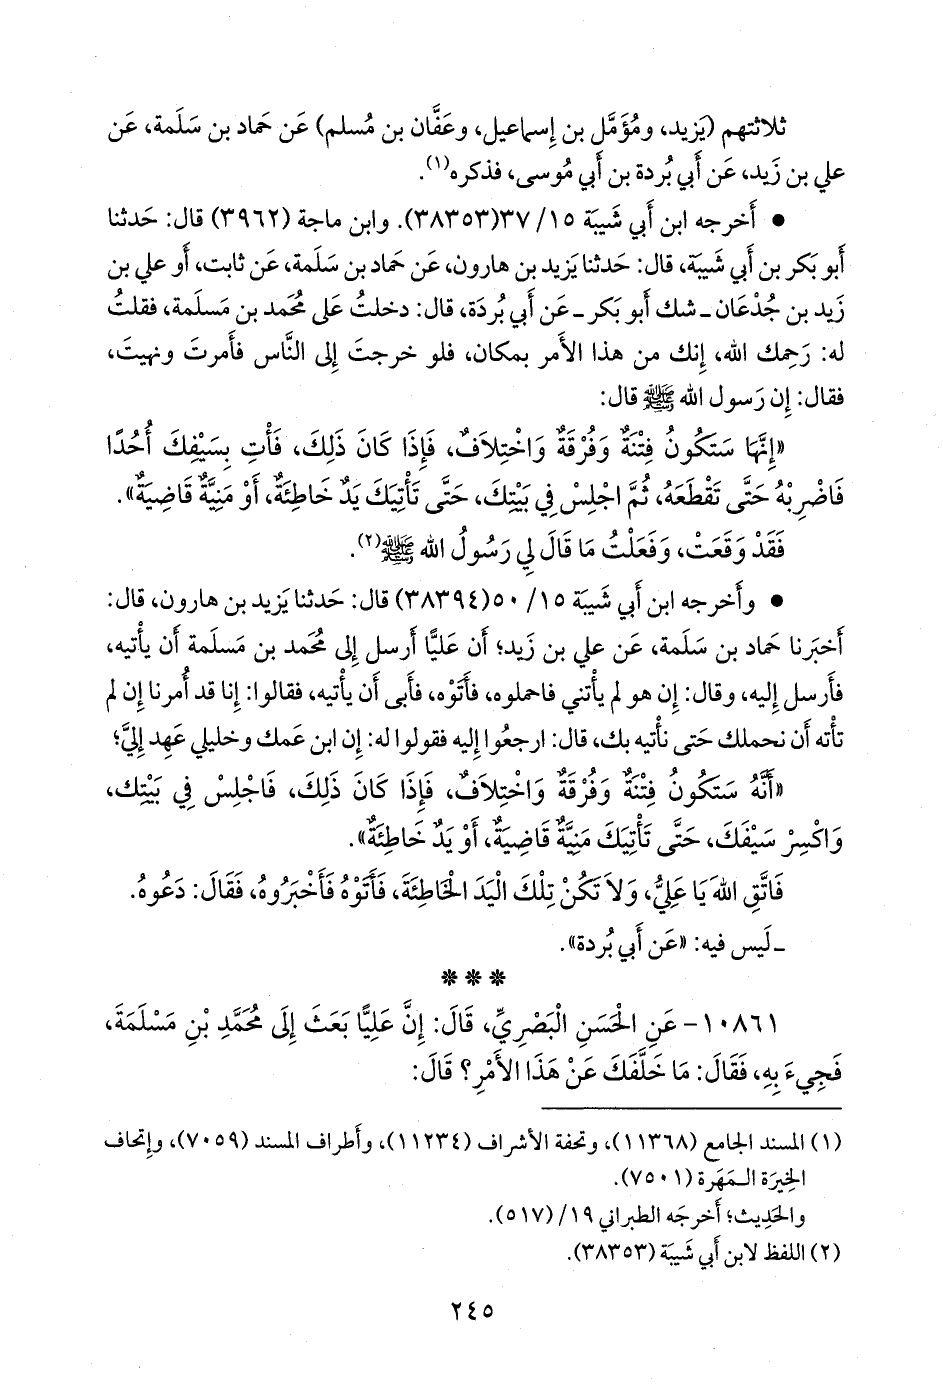 ثلاثتهم (يَزيد، ومُؤَمَّل بن إسماعيل، وعَفَّان بن مُسلم) عَن حَماد بن سَلَمة، عَن
علي بن زَيد، عَن أَبي بُردة بن أَبي مُوسى، فذكره(١).
• أَخرجه ابن أَبي شَيبَة ١٥/ ٣٧(٣٨٣٥٣). وابن ماجة (٣٩٦٢) قال: حَدثنا
أَبو بَكر بن أَبي شَيبَة، قال: حَدثنا يَزيد بن هارون، عَن حَماد بن سَلَمة، عَن ثابت، أَو علي بن
زَيد بن جُدْعَان ـ شك أَبو بَكر ـ عَن أَبي بُردَة، قال: دخلتُ عَلى مُحمد بن مَسلَمة، فقلتُ
له: رَحِمك الله، إِنك من هذا الأَمر بمكان، فلو خرجتَ إِلى النَّاس فأَمرتَ ونهيتَ،
فقال: إِن رَسول الله ﷺ قال:
«إِنَّهَا سَتَكُونُ فِتْنَةٌ وَفُرْقَةٌ وَاخْتِلاَفٌ، فَإِذَا كَانَ ذَلِكَ، فَأْتِ بِسَيْفِكَ أُحُدًا
فَاضْرِبْهُ حَتَّى تَقْطَعَهُ، ثُمَّ اجْلِسْ فِي بَيْتِكَ، حَتَّى تَأْتِيَكَ يَدٌ خَاطِئَةٌ، أَوْ مَنِيَّةٌ قَاضِيَةٌ».
فَقَدْ وَقَعَتْ، وَفَعَلْتُ مَا قَالَ لِي رَسُولُ الله ﷺ(٢).
• وأَخرجه ابن أَبي شَيبَة ١٥/ ٥٠(٣٨٣٩٤) قال: حَدثنا يَزيد بن هارون، قال:
أَخبَرنا حَماد بن سَلَمة، عَن علي بن زَيد؛ أَن عَليًّا أَرسل إِلى مُحمد بن مَسلَمة أَن يأْتيه،
فأَرسل إِليه، وقال: إِن هو لم يأْتني فاحملوه، فأَتَوْه، فأَبى أَن يأْتيه، فقالوا: إِنا قد أُمرنا إِن لم
تأْته أَن نحملك حَتى نأْتيه بك، قال: ارجعُوا إِليه فقولوا له: إِن ابن عَمك وخليلي عَهِد إِليَّ؛
«أَنَّهُ سَتَكُونُ فِتْنَةٌ وَفُرْقَةٌ وَاخْتِلاَفٌ، فَإِذَا كَانَ ذَلِكَ، فَاجْلِسْ فِي بَيْتِك،
وَاكْسِرْ سَيْفَكَ، حَتَّى تَأْتِيَكَ مَنِيَّةٌ قَاضِيَةٌ، أَوْ يَدٌ خَاطِئَةٌ».
فَاتَّقِ اللهَ يَا عَلِيُّ، وَلاَ تَكُنْ تِلْكَ الْيَدَ الْخَاطِئَةَ، فَأَتَوْهُ فَأَخْبَرُوهُ، فَقَالَ: دَعُوهُ.
ـ لَيس فيه: «عَن أَبي بُردة».
***
١٠٨٦١- عَنِ الْحَسَنِ الْبَصْرِيِّ، قَالَ: إِنَّ عَلِيًّا بَعَثَ إِلَى مُحَمَّدِ بْنِ مَسْلَمَةَ،
فَجِيءَ بِهِ، فَقَالَ: مَا خَلَّفَكَ عَنْ هَذَا الأَمْرِ؟ قَالَ:
(١) المسند الجامع (١١٣٦٨)، وتحفة الأشراف (١١٢٣٤)، وأَطراف المسند (٧٠٥٩)، وإِتحاف
الخِيرَة المَهَرة (٧٥٠١).
والحَدِيث؛ أَخرجَه الطبراني ١٩/ (٥١٧).
(٢) اللفظ لابن أَبي شَيبَة (٣٨٣٥٣).
٢٤٥